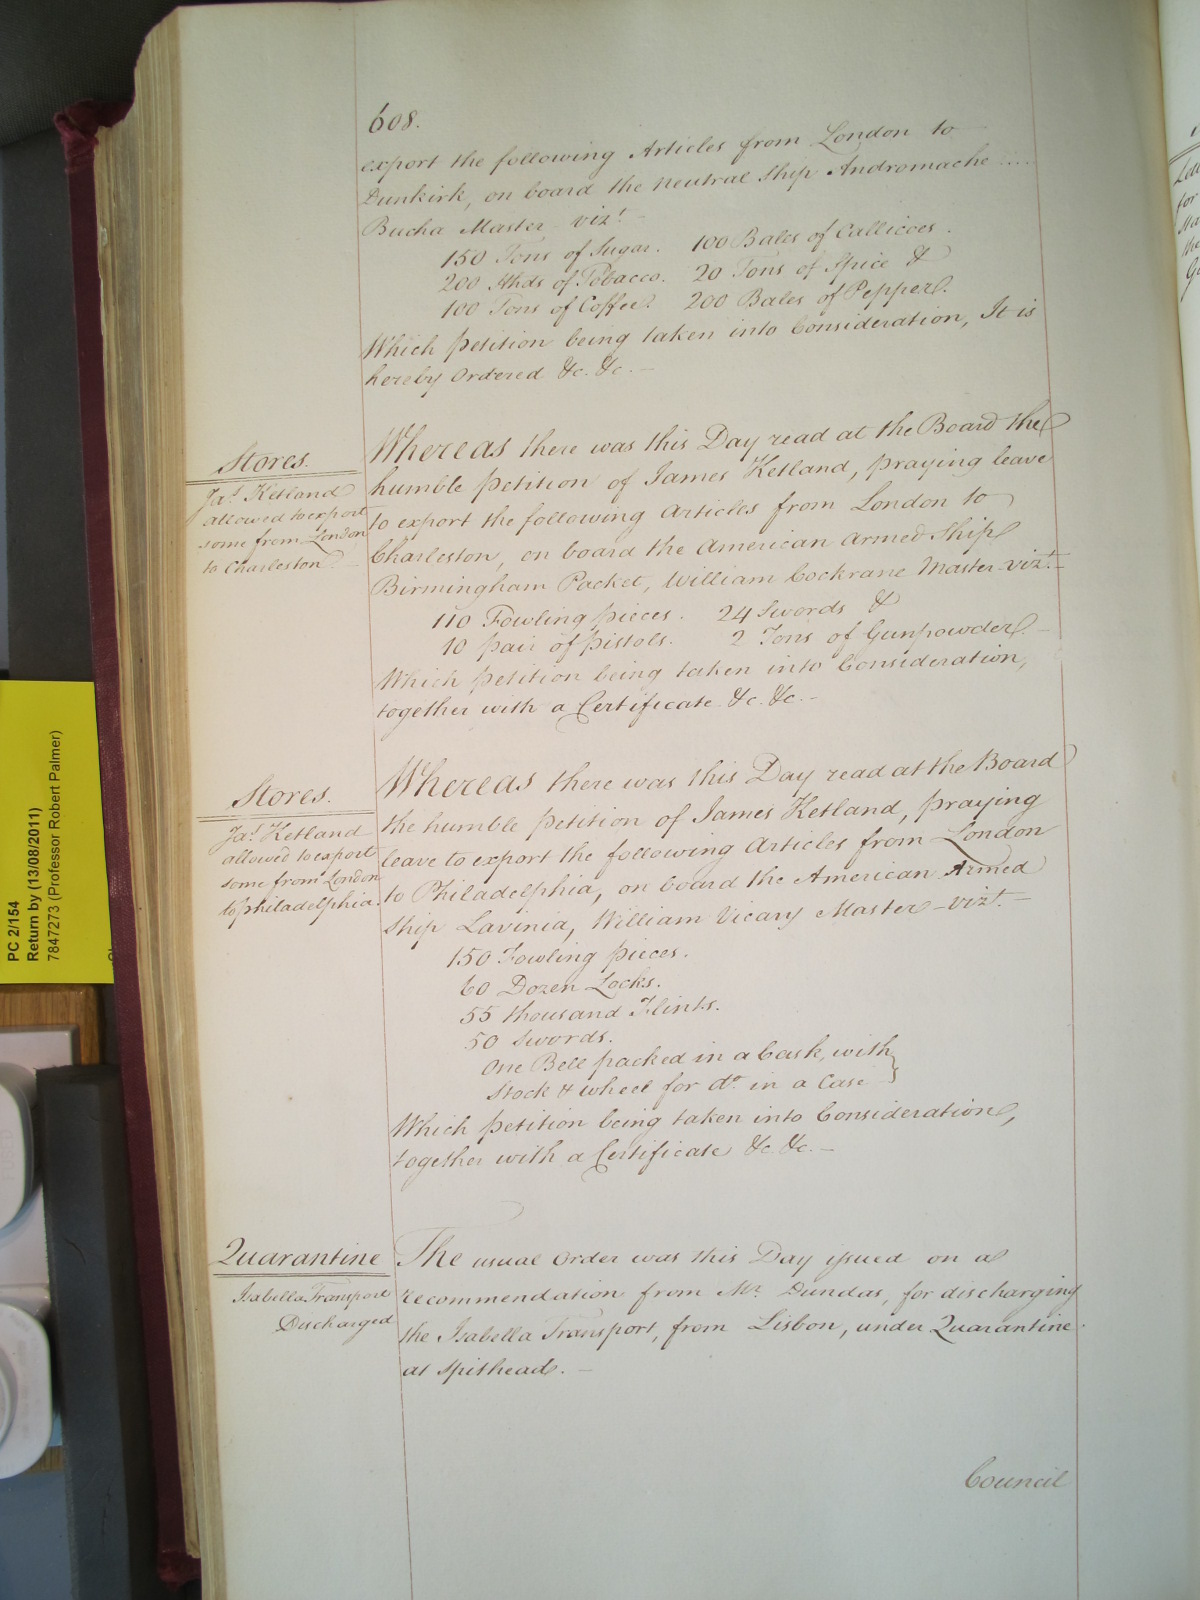 608.
export the following Articles from London to
Dunkirk, on board the neutral Ship Andromache ....
Bucha Master vizt. -
150 Tons of Sugar. 100 Bales of Callicoes.
200 Hhds of Tobacco. 20 Tons of Spice &
100 Tons of Coffee. 200 Bales of Pepper.
Which petition being taken into Consideration, It is
hereby Ordered &c. &c. -
Stores.
Jas. Ketland
allowed to export
some from London
to Charleston -
Whereas there was this Day read at the Board the
humble petition of James Ketland, praying leave
to export the following Articles from London to
Charleston, on board the American Armed Ship
Birmingham Packet, William Cockrane Master vizt. -
110 Fowling pieces. 24 Swords &
10 pair of pistols. 2 Tons of Gunpowder. -
Which petition being taken into Consideration,
together with a Certificate &c. &c. -
Stores.
Jas. Ketland
allowed to export
some from London
to philadelphia.
Whereas there was this Day read at the Board
the humble petition of James Ketland, praying
leave to export the following Articles from London
to Philadelphia, on board the American Armed
Ship Lavinia, William Vicary Master - vizt. -
150 Fowling pieces.
60 Dozen Locks.
55 thousand Flints.
50 Swords.
One Bell packed in a Cask, with
Stock & wheel for do. in a Case
Which petition being taken into Consideration,
together with a Certificate &c. &c. -
Quarantine
Isabella Transport
Discharged
The usual Order was this Day issued on a
recommendation from Mr. Dundas, for discharging
the Isabella Transport, from Lisbon, under Quarantine
at Spithead. -
Council
PC 2/154
Return by (13/08/2011)
7847273 (Professor Robert Palmer)